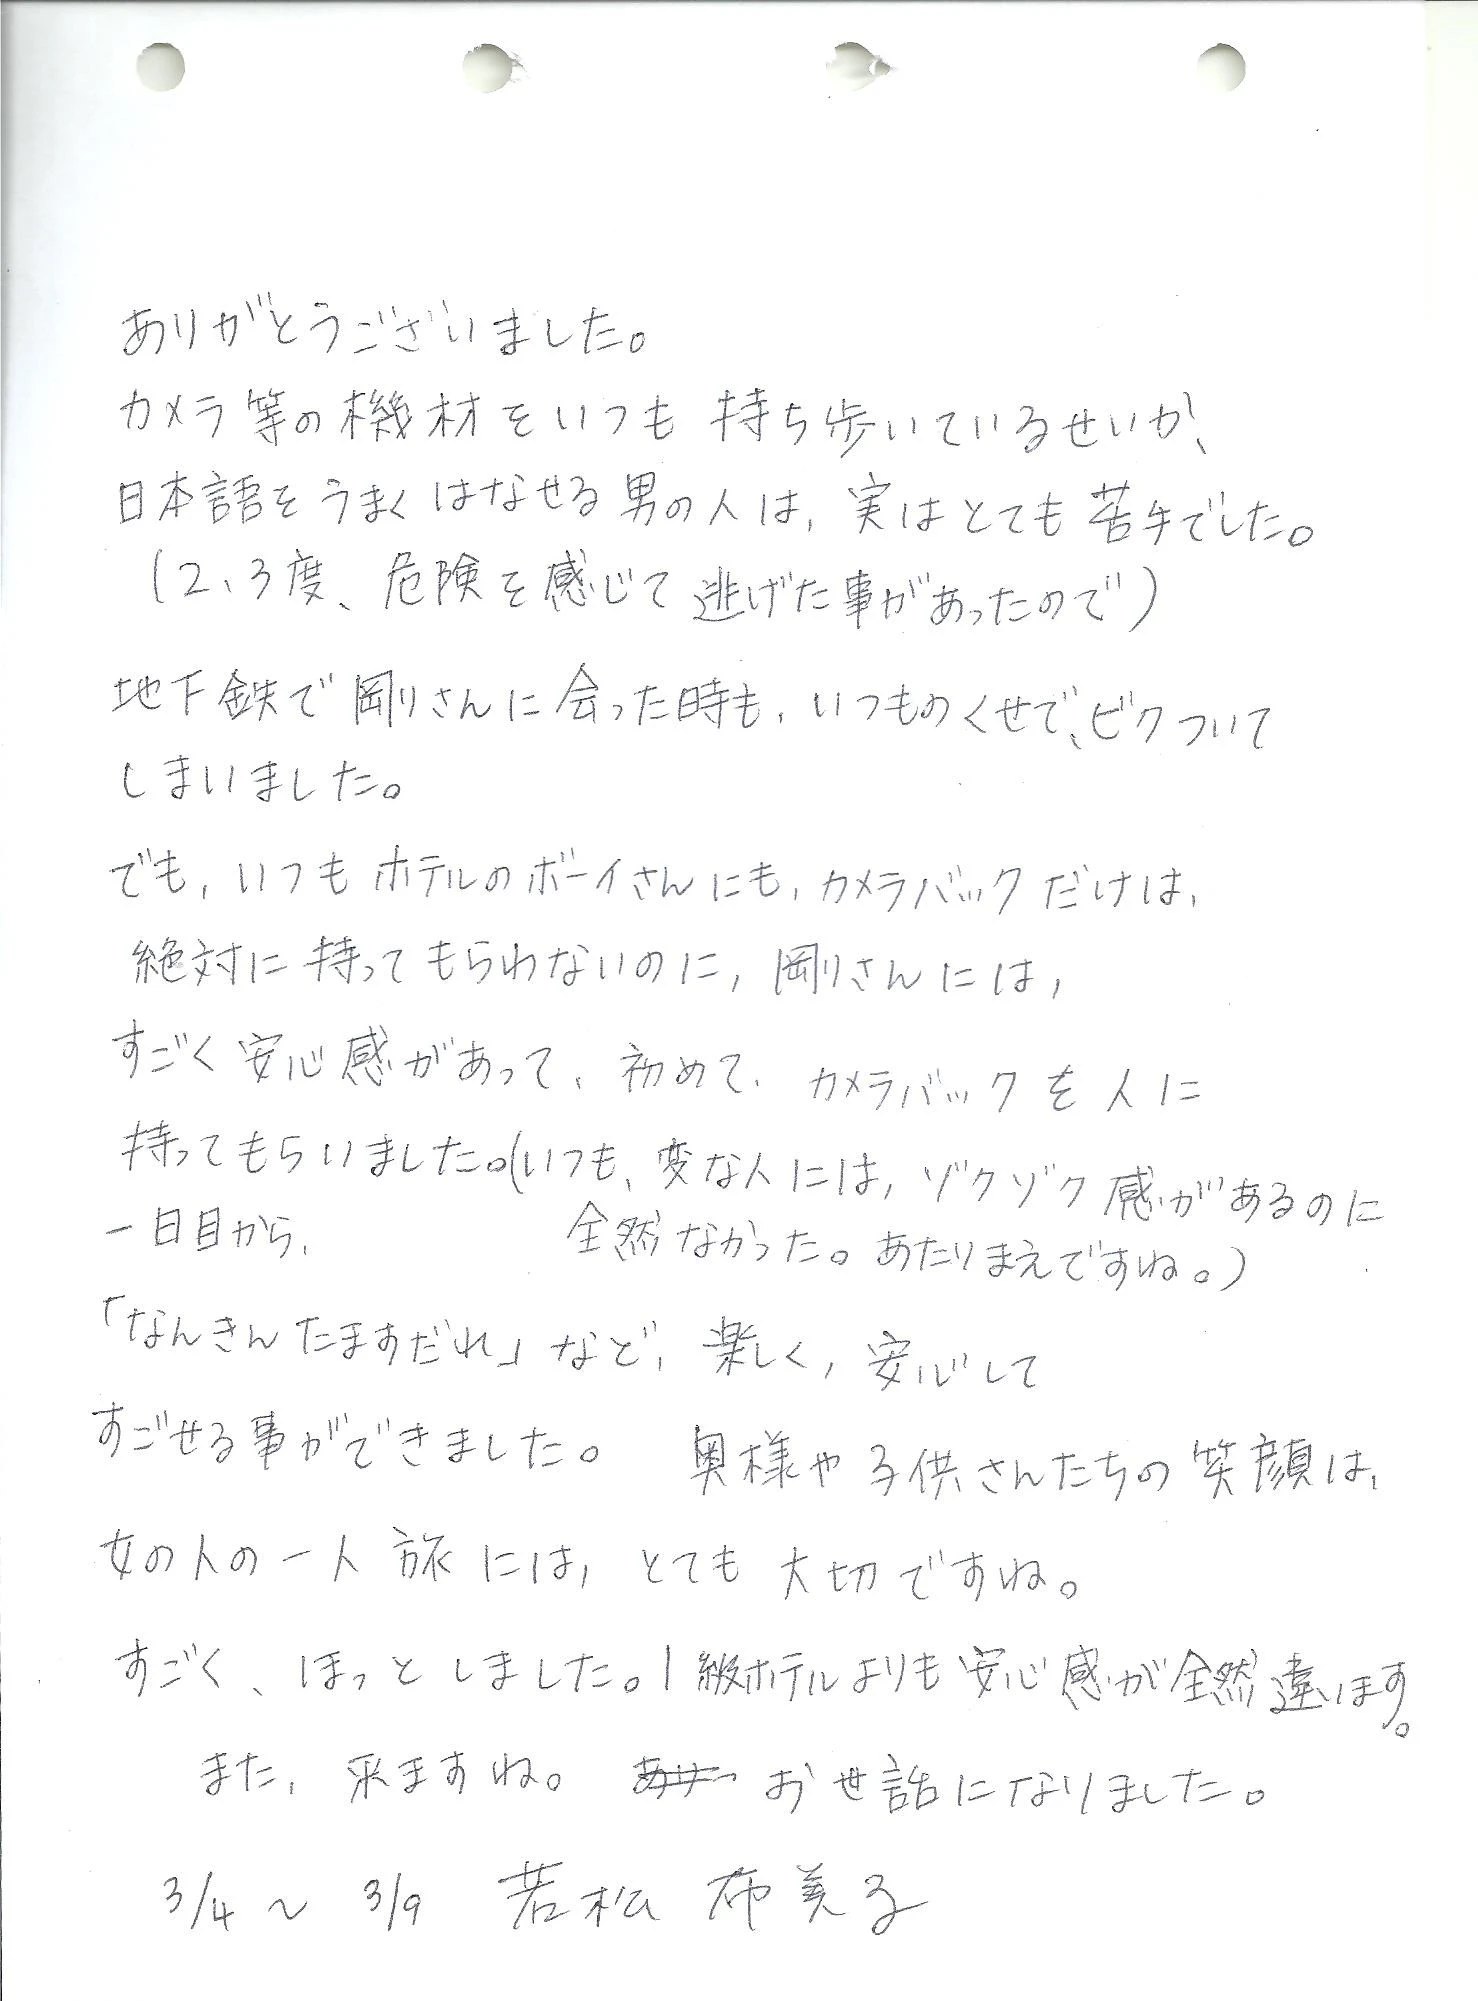 ありがとうございました。
カメラ等の機材をいつも持ち歩いているせいか、
日本語をうまくはなせる男の人は、実はとても苦手でした。
(2、3度、危険を感じて逃げた事があったので)
地下鉄で剛りさんに会った時も、いつものくせで、ビクついて
しまいました。
でも、いつもホテルのボーイさんにも、カメラバックだけは、
絶対に持ってもらわないのに、剛りさんには、
すごく安心感があって、初めて、カメラバックを人に
持ってもらいました。(いつも、変な人には、ゾクゾク感があるのに
全然なかった。あたりまえですね。)
一日目から、
「なんきんたますだれ」など、楽しく、安心して
すごせる事ができました。 奥様や子供さんたちの笑顔は、
女の人の一人旅には、とても大切ですね。
すごく、ほっとしました。1級ホテルよりも安心感が全然違います。
また、来ますね。 お世話になりました。
3/4～3/9 若松 布美子